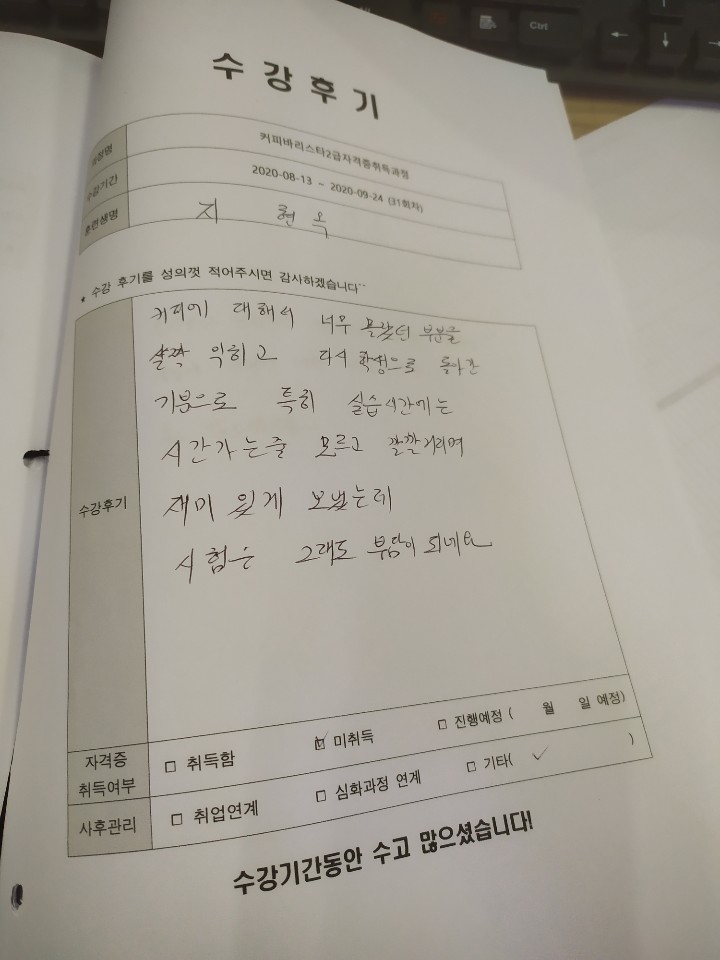 수강후기
과정명 커피바리스타2급자격증취득과정
수강기간 2020-08-13 ~ 2020-09-24 (31회차)
훈련생명 지 현옥
* 수강 후기를 성의껏 적어주시면 감사하겠습니다^^
수강후기
커피에 대해서 너무 몰랐던 부분을
살짝 익히고 다시 학생으로 돌아간
기분으로 특히 실습시간에는
시간가는줄 모르고 깔깔거리며
재미 있게 보냈는데
시험은 그래도 부담이 되네요
자격증 취득여부 □ 취득함 ☑ 미취득 □ 진행예정 ( 월 일 예정)
사후관리 □ 취업연계 □ 심화과정 연계 □ 기타( ✓ )
수강기간동안 수고 많으셨습니다!
Ctrl